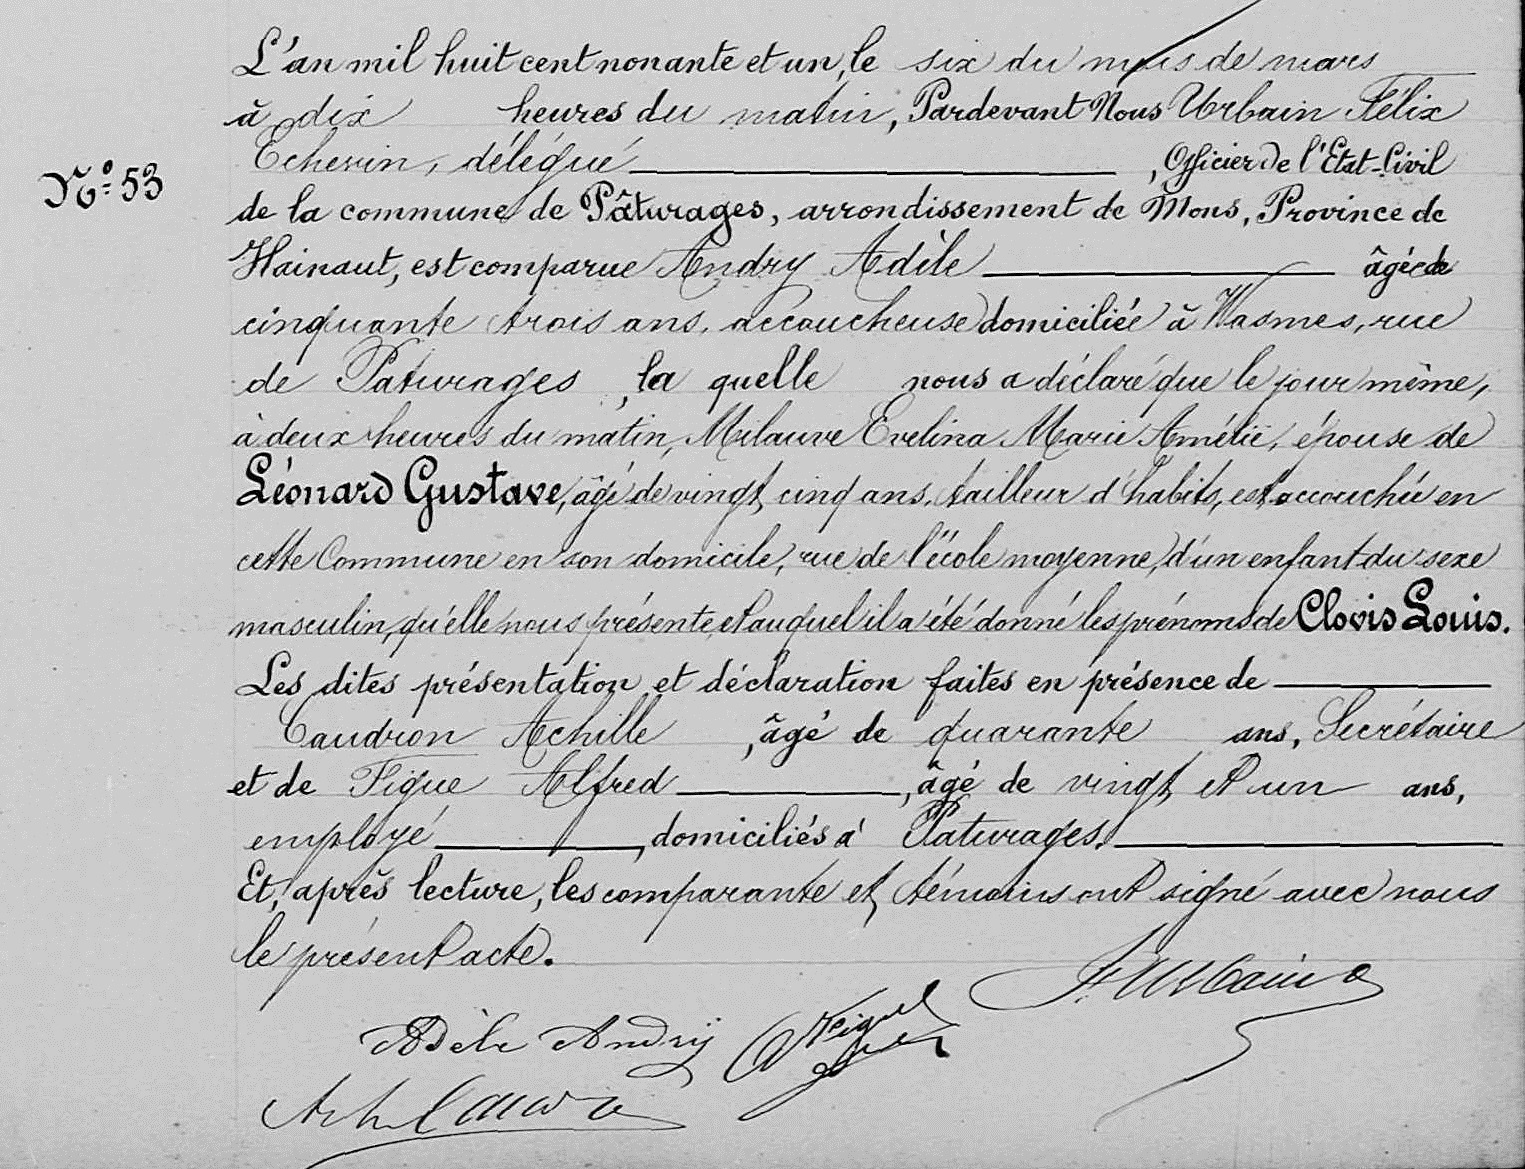 L'an mil huit cent nonante et un, le six du mois de mars
à dix heures du matin, Pardevant Nous Urbain Félix
Echevin, délégué, Officier de l'Etat-Civil
N.º 53
de la commune de Pâturages, arrondissement de Mons, Province de
Hainaut, est comparue Andry Adèle âgée de
cinquante trois ans, accoucheuse domiciliée à Wasmes, rue
de Paturages, la quelle nous a déclaré que le jour même,
à deux heures du matin, Milauve Evelina Marie Amélie, épouse de
Léonard Gustave, âgé de vingt cinq ans, tailleur d'habits, est accouchée en
cette Commune en son domicile, rue de l'école moyenne, d'un enfant du sexe
masculin, qu'elle nous présente et auquel il a été donné les prénoms de Clovis Louis.
Les dites présentation et déclaration faites en présence de
Caudron Achille, âgé de quarante ans, Secrétaire
et de Fique Alfred, âgé de vingt et un ans,
employé, domiciliés à Paturages.
Et, après lecture, les comparante et témoins ont signé avec nous
le présent acte.
F Urbain
Adèle Andry